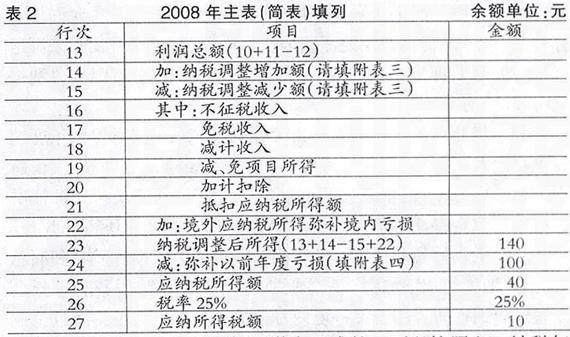 表2 2008年主表(简表)填列 余额单位:元
行次 项目 金额
13 利润总额(10+11-12)
14 加:纳税调整增加额(请填附表三)
15 减:纳税调整减少额(请填附表三)
16 其中:不征税收入
17 免税收入
18 减计收入
19 减、免项目所得
20 加计扣除
21 抵扣应纳税所得额
22 加:境外应纳税所得弥补境内亏损
23 纳税调整后所得(13+14-15+22) 140
24 减:弥补以前年度亏损(填附表四) 100
25 应纳税所得额 40
26 税率25% 25%
27 应纳所得税额 10